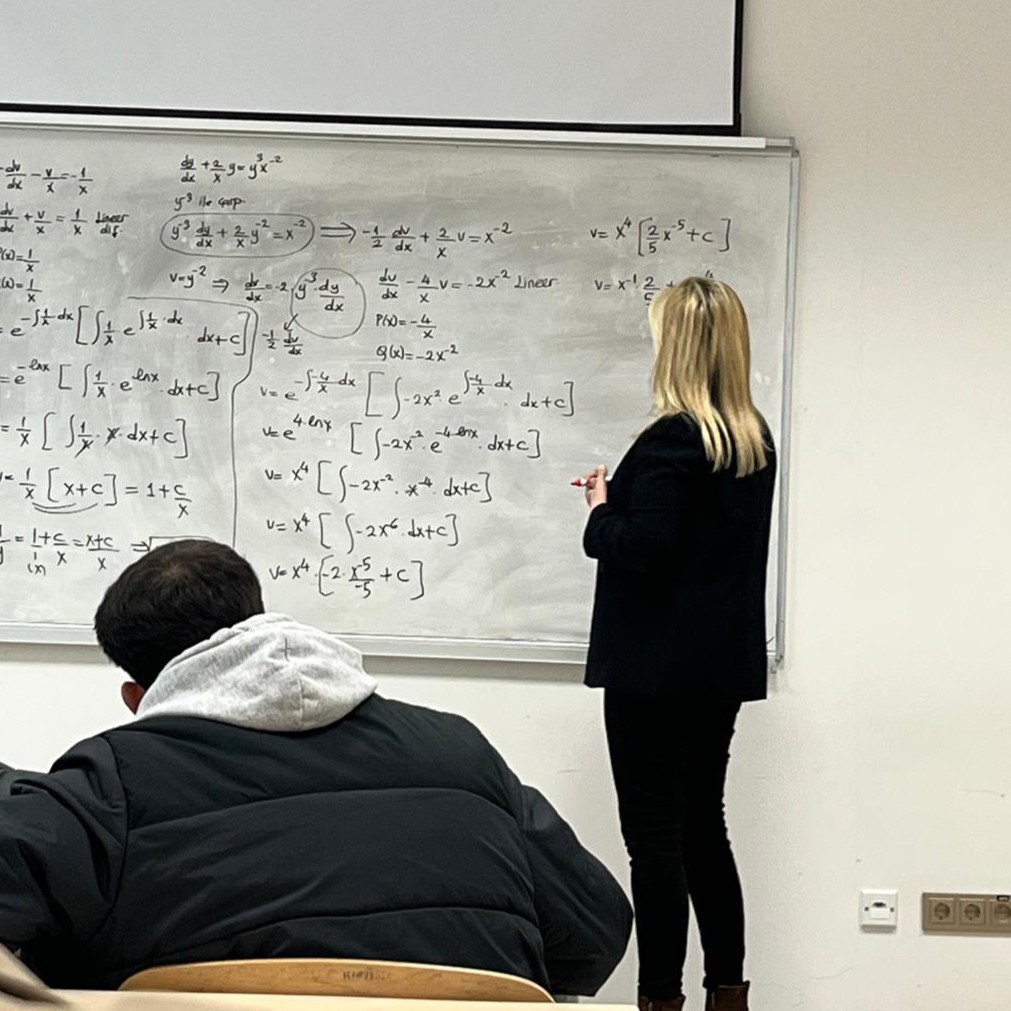 dv/dx - v/x = -1/x
dv/dx + v/x = 1/x Lineer dif.
P(x) = 1/x
Q(x) = 1/x
= e^{-∫1/x dx} [∫1/x e^{∫1/x · dx} dx+c]
= e^{-lnx} [∫1/x · e^{lnx} · dx+c]
= 1/x [∫1/x · x · dx+c]
v = 1/x [x+c] = 1+c/x
1/y = 1/1 + c/x = x+c/x ⇒
(x)
dy/dx + 2/x y = y^3 x^{-2}
y^{-3} ile çarp.
y^{-3} dy/dx + 2/x y^{-2} = x^{-2} ⇒ -1/2 dv/dx + 2/x v = x^{-2}
v = y^{-2} ⇒ dv/dx = -2 · y^{-3} · dy/dx
-1/2 dv/dx
dv/dx - 4/x v = -2x^{-2} Lineer
P(x) = -4/x
Q(x) = -2x^{-2}
v = e^{-∫-4/x dx} [∫-2x^{-2} · e^{∫-4/x dx} · dx+c]
v = e^{4·lnx} [∫-2x^{-2} · e^{-4·lnx} · dx+c]
v = x^4 [∫-2x^{-2} · x^{-4} · dx+c]
v = x^4 [∫-2x^{-6} · dx+c]
v = x^4 · [-2 · x^{-5}/-5 + c]
v = x^4 [2/5 x^{-5} + c]
v = x^{-1} 2/5 +